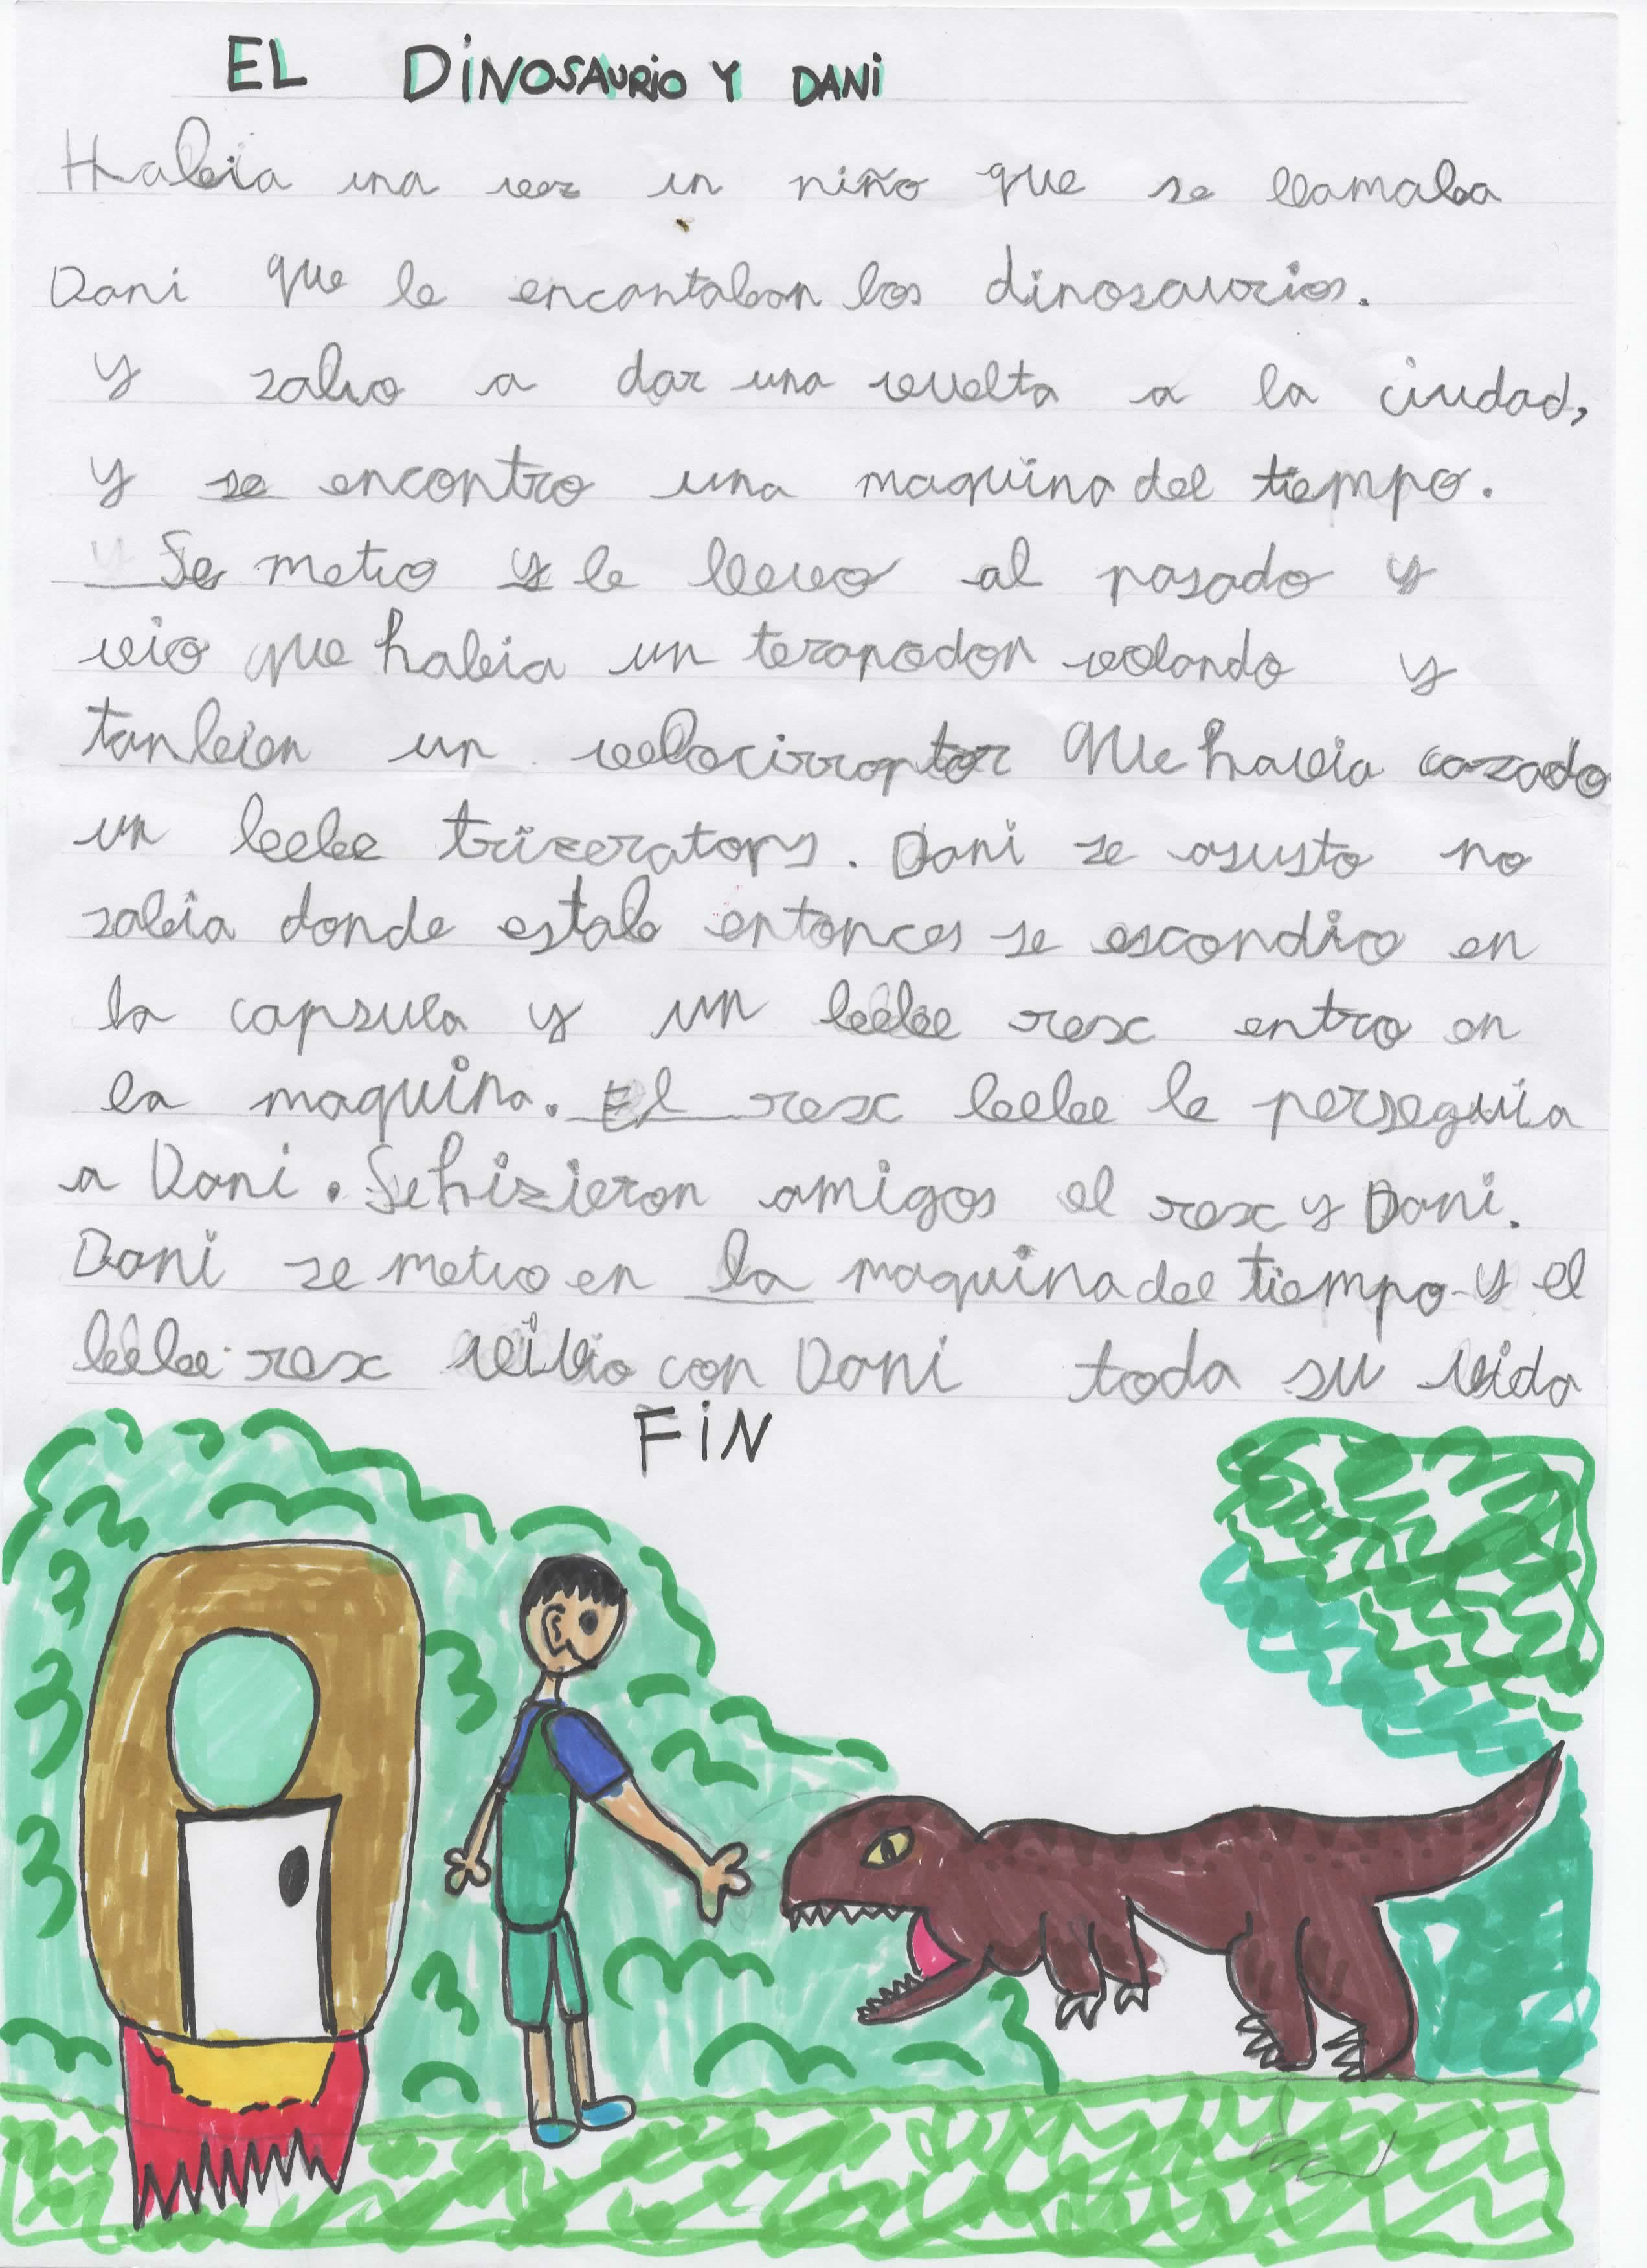 EL DINOSAURIO Y DANI
Habia una vez un niño que se llamaba
Dani que le encantaban los dinosaurios.
y salio a dar una vuelta a la ciudad,
y se encontro una maquina del tiempo.
Se metio y le llevo al pasado y
vio que habia un teranodon volando y
tanbien un velocirraptor que havia cazado
un bebe trizeratops. Dani se asusto no
sabia donde estab entonces se escondio en
la capsula y un bebe rex entro en
la maquina. El rex bebe le perseguia
a Dani. Se hizieron amigos el rex y Dani.
Dani se metio en la maquina del tiempo y el
bebe rex vivio con Dani toda su vida
FIN